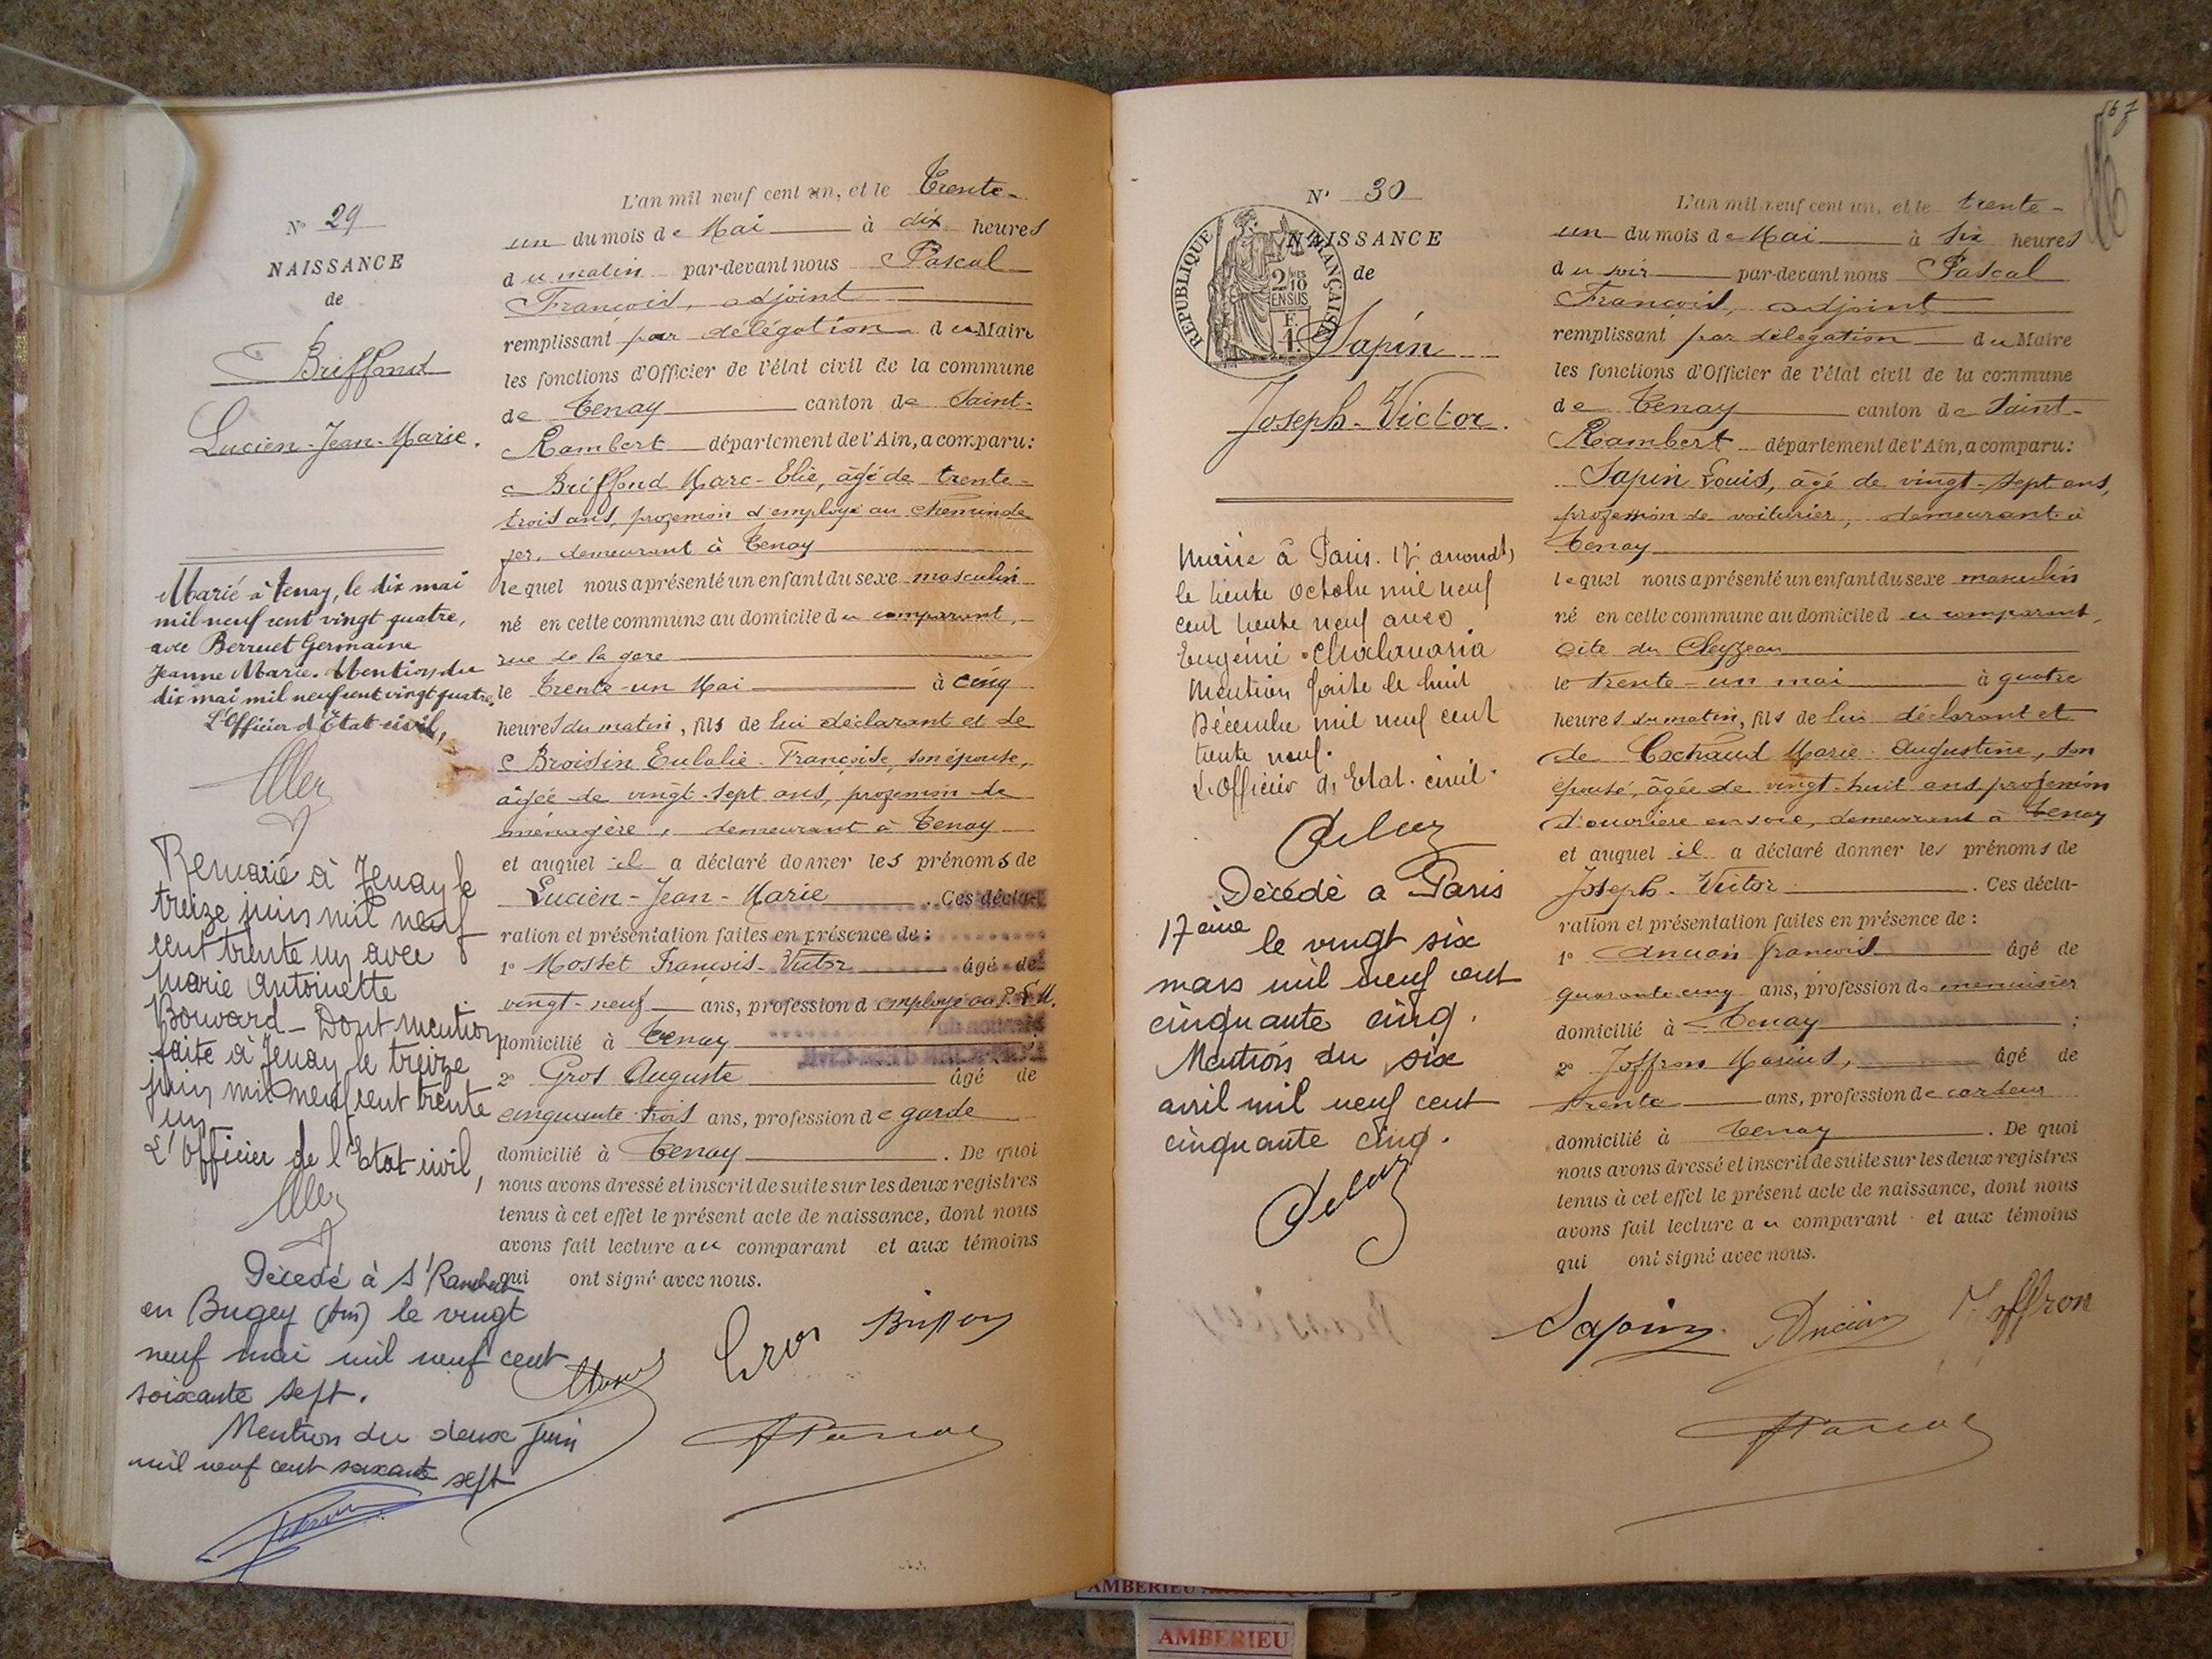 N° 29
NAISSANCE
de
Briffond
Lucien-Jean-Marie.
Marié à Tenay, le dix mai
mil neuf cent vingt quatre,
avec Berruet Germaine
Jeanne Marie. Mention du
dix mai mil neuf cent vingt quatre.
L'Officier d'Etat civil,
Remarié à Tenay le
treize juin mil neuf
cent trente un avec
Marie Antoinette
Bouvard - Dont mention
faite à Tenay le treize
juin mil neuf cent trente
un
L'Officier de l'Etat civil,
Décedé à St Rambert
en Bugey (Ain) le vingt
neuf mai mil neuf cent
soixante sept.
Mention du deux Juin
mil neuf cent soixante sept
L'an mil neuf cent un, et le Trente-
un du mois de Mai à dix heures
du matin par-devant nous Pascal
François, adjoint
remplissant par délégation du Maire
les fonctions d'Officier de l'état civil de la commune
de Tenay canton de Saint-
Rambert département de l'Ain, a comparu:
Briffond Marc-Elie, âgé de trente-
trois ans, profession d'employé au chemin de
fer, demeurant à Tenay
lequel nous a présenté un enfant du sexe masculin
né en cette commune au domicile du comparant,
rue de la gare
le Trente-un Mai à cinq
heures du matin, fils de lui déclarant et de
Broissin Eulalie-Françoise, son épouse,
âgée de vingt-sept ans, profession de
ménagère, demeurant à Tenay
et auquel il a déclaré donner les prénoms de
Lucien-Jean-Marie. Ces décla-
ration et présentation faites en présence de :
1° Mosset François-Victor âgé de
vingt-neuf ans, profession d employé au P.L.M.
domicilié à Tenay
2° Gros Auguste âgé de
cinquante-trois ans, profession de garde
domicilié à Tenay. De quoi
nous avons dressé et inscrit de suite sur les deux registres
tenus à cet effet le présent acte de naissance, dont nous
avons fait lecture au comparant et aux témoins
qui ont signé avec nous.
Gros Briffond
FPascal
567
N° 30
NAISSANCE
de
REPUBLIQUE FRANÇAISE
2/10
EN SUS
F.
1.
Sapin
Joseph-Victor.
Marié à Paris. 17e arrondt,
le trente Octobre mil neuf
cent trente neuf avec
Eugénie Chalavaria
Mention faite le huit
Décembre mil neuf cent
trente neuf.
L'Officier d'Etat-civil.
Décédé a Paris
17ème le vingt six
mars mil neuf cent
cinquante cinq.
Mention du six
avril mil neuf cent
cinquante cinq.
L'an mil neuf cent un, et le trente-
un du mois de Mai à six heures
du soir par-devant nous Pascal
François, adjoint
remplissant par délégation du Maire
les fonctions d'Officier de l'état civil de la commune
de Tenay canton de Saint-
Rambert département de l'Ain, a comparu:
Sapin Louis, âgé de vingt-sept ans,
profession de voiturier, demeurant à
Tenay
lequel nous a présenté un enfant du sexe masculin
né en cette commune au domicile du comparant,
cité du Cleyzeau
le trente-un mai à quatre
heures du matin, fils de lui déclarant et
de Cochaud Marie-Augustine, son
épouse, âgée de vingt-huit ans, profession
d'ouvrière en soie, demeurant à Tenay
et auquel il a déclaré donner les prénoms de
Joseph-Victor. Ces décla-
ration et présentation faites en présence de :
1° Ancian François âgé de
quarante cinq ans, profession de menuisier
domicilié à Tenay ;
2° Joffron Marius, âgé de
trente ans, profession de cardeur
domicilié à Tenay. De quoi
nous avons dressé et inscrit de suite sur les deux registres
tenus à cet effet le présent acte de naissance, dont nous
avons fait lecture au comparant et aux témoins
qui ont signé avec nous.
Sapin Ancian Joffron
FPascal
AMBERIEU
AMBERIEU